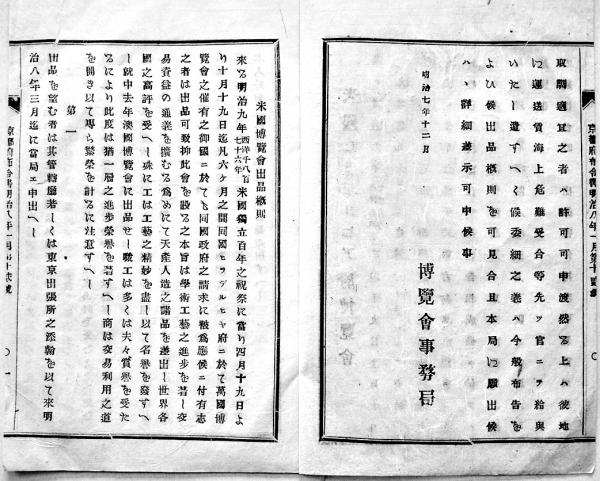 取調適宜之者ハ許可可申渡然る上ハ彼地
に運送賃海上危難受合等先ツ官ニヲ給與
いたし遣すへく候委細之義ハ今般布告を
よひ候出品概則を可見合且本局に願出候
ハヽ詳細差示可申候事
明治七年十二月
博覽會事務局
京都府布令書明治八年一月第十貳號
米國博覽會出品概則
來る明治九年西洋千八百七十六年米國獨立百年之祝祭に當り四月十九日よ
り十月十九日迄凡六ケ月之間同國ヒラデルヒヤ府ニ於て萬國博
覽會之催有之御國ニ於ても同國政府之請求に被爲應候ニ付有志
之者は出品可致抑此會を設るの本旨は學術工藝之進步を著し交
易資益の通義を擴むる爲めにて天產人造之諸品を差出し世界各
國之高評を受へし殊に工は工藝之精妙を盡し以て名譽を發すへ
し就中去年澳國博覽會に出品せし職工は多くは夫々賞譽を受た
るにより此度は猶一層之進步榮譽を著すへし商は交易利用之道
を開き以て專ら繁榮を計るに注意すへし
第一
出品を望む者は其管轄廳若しくは東京出張所之添翰を以て來明
治八年三月迄に當局エ申出へし
京都府布令書明治八年一月第十貳號
一